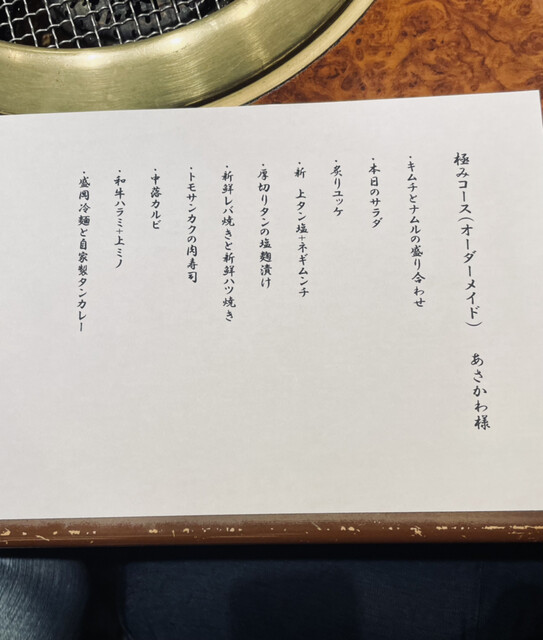 極みコース(オーダーメイド) あさかわ様
・キムチとナムルの盛り合わせ
・本日のサラダ
・炙りユッケ
・新 上タン塩+ネギムンチ
・厚切りタンの塩麹漬け
・新鮮レバ焼きと新鮮ハツ焼き
・トモサンカクの肉寿司
・中落カルビ
・和牛ハラミ+上ミノ
・盛岡冷麺と自家製タンカレー